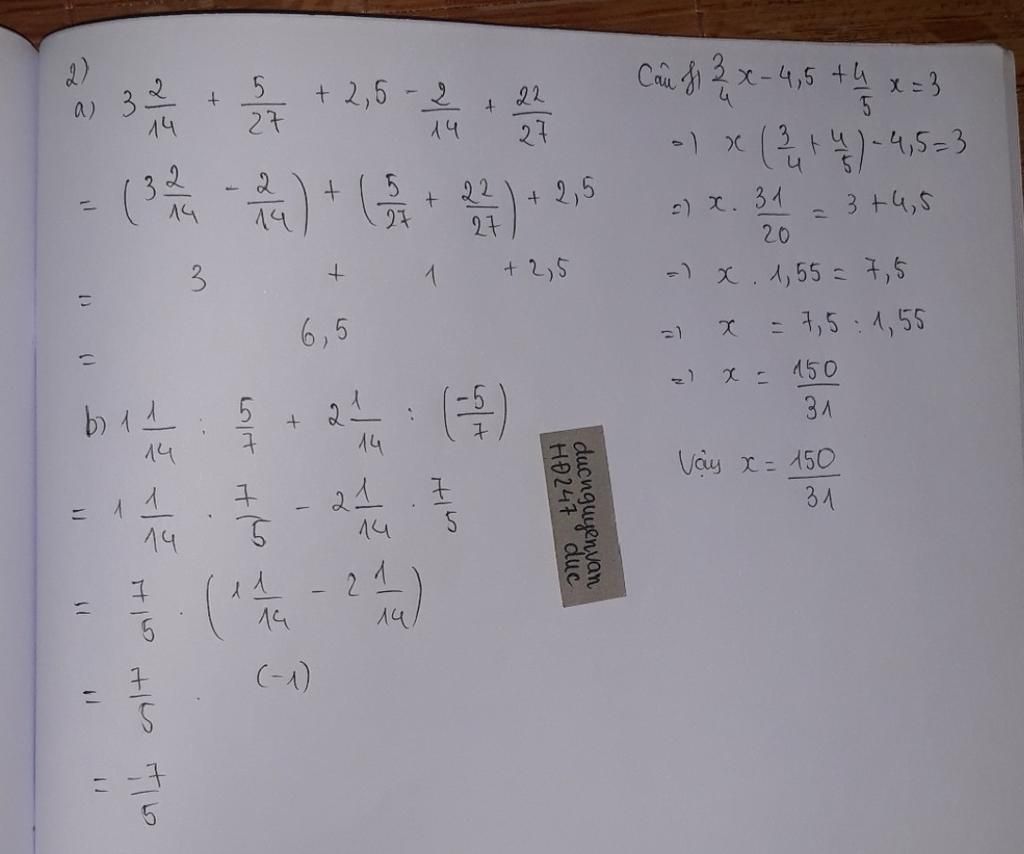 2)
a) 3 2/14 + 5/27 + 2,5 - 2/14 + 22/27
= (3 2/14 - 2/14) + (5/27 + 22/27) + 2,5
= 3 + 1 + 2,5
= 6,5
b) 1 1/14 : 5/7 + 2 1/14 : (-5/7)
= 1 1/14 . 7/5 - 2 1/14 . 7/5
= 7/5 . (1 1/14 - 2 1/14)
= 7/5 . (-1)
= -7/5
ducnguyenvan
HĐ247 duc
3/4 x - 4,5 + 4/5 x = 3
=) x (3/4 + 4/5) - 4,5 = 3
=) x . 31/20 = 3 + 4,5
=) x . 1,55 = 7,5
=) x = 7,5 : 1,55
=) x = 150/31
Vậy x = 150/31